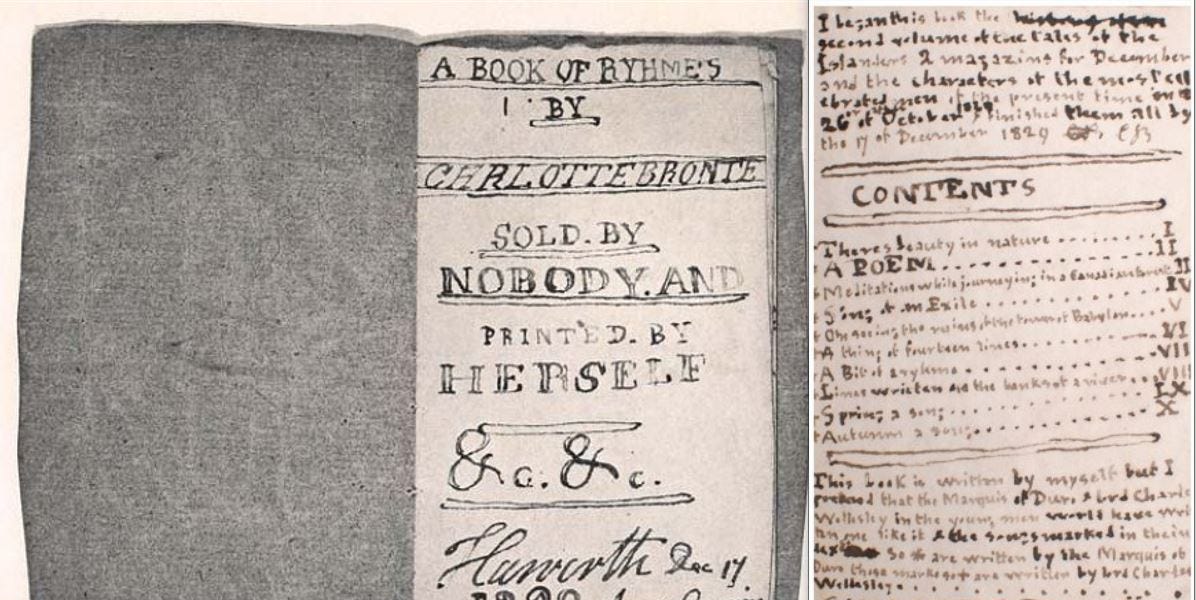 A BOOK OF RYHME'S
BY
CHARLOTTE BRONTE
SOLD. BY
NOBODY. AND
PRINTED. BY
HERSELF
&c. &c.
Haworth Dec 17
I began this book the
second volume of the tales of the
Islanders 2 magazine for December
and the characters of the most cel
ebrated men of the present time on the
26th of October 1829 finished them all by
the 17 of December 1829 CB
CONTENTS
Theres beauty in nature .......... I
A POEM .......... II
Meditations while journeying in a Canadian forest III
Song of an Exile .......... IV
On seeing the ruins of the tower of Babylon .... V
A thing of fourteen lines .......... VI
A Bit of a ryhme .......... VII
Lines written on the banks of a river .... VIII
Spring a song .......... IX
Autumn a song .......... X
This book is written by myself but I
pretend that the Marquis of Duro & lord Charle
Wellesley in the young men world have writ
ten one like it & the songs marked in the in
so * are written by the Marquis of
Duro those marked so † are written by lord Charles
Wellesley